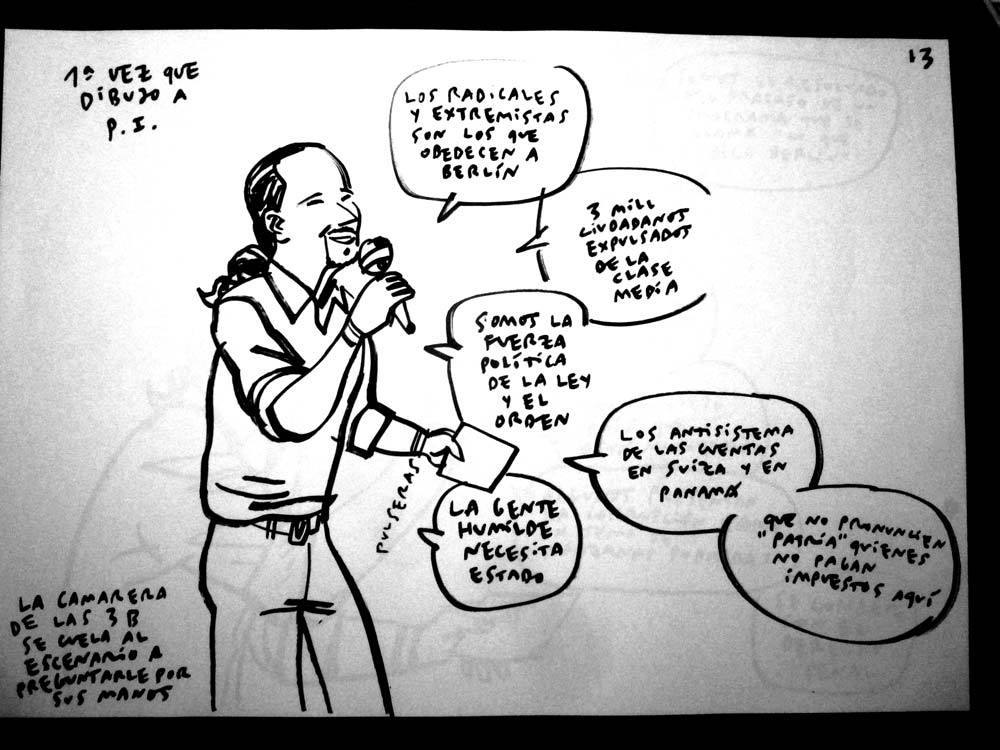 13
1ª VEZ QUE
DIBUJO A
P. I.
LOS RADICALES
Y EXTREMISTAS
SON LOS QUE
OBEDECEN A
BERLÍN
3 MILL
CIUDADANOS
EXPULSADOS
DE LA
CLASE
MEDIA
SOMOS LA
FUERZA
POLÍTICA
DE LA LEY
Y EL
ORDEN
LOS ANTISISTEMA
DE LAS CUENTAS
EN SUIZA Y EN
PANAMÁ
QUE NO PRONUNCIEN
"PATRIA" QUIENES
NO PAGAN
IMPUESTOS AQUÍ
LA GENTE
HUMILDE
NECESITA
ESTADO
PULSERAS
LA CAMARERA
DE LAS 3 B
SE CUELA AL
ESCENARIO A
PREGUNTARLE POR
SUS MANOS